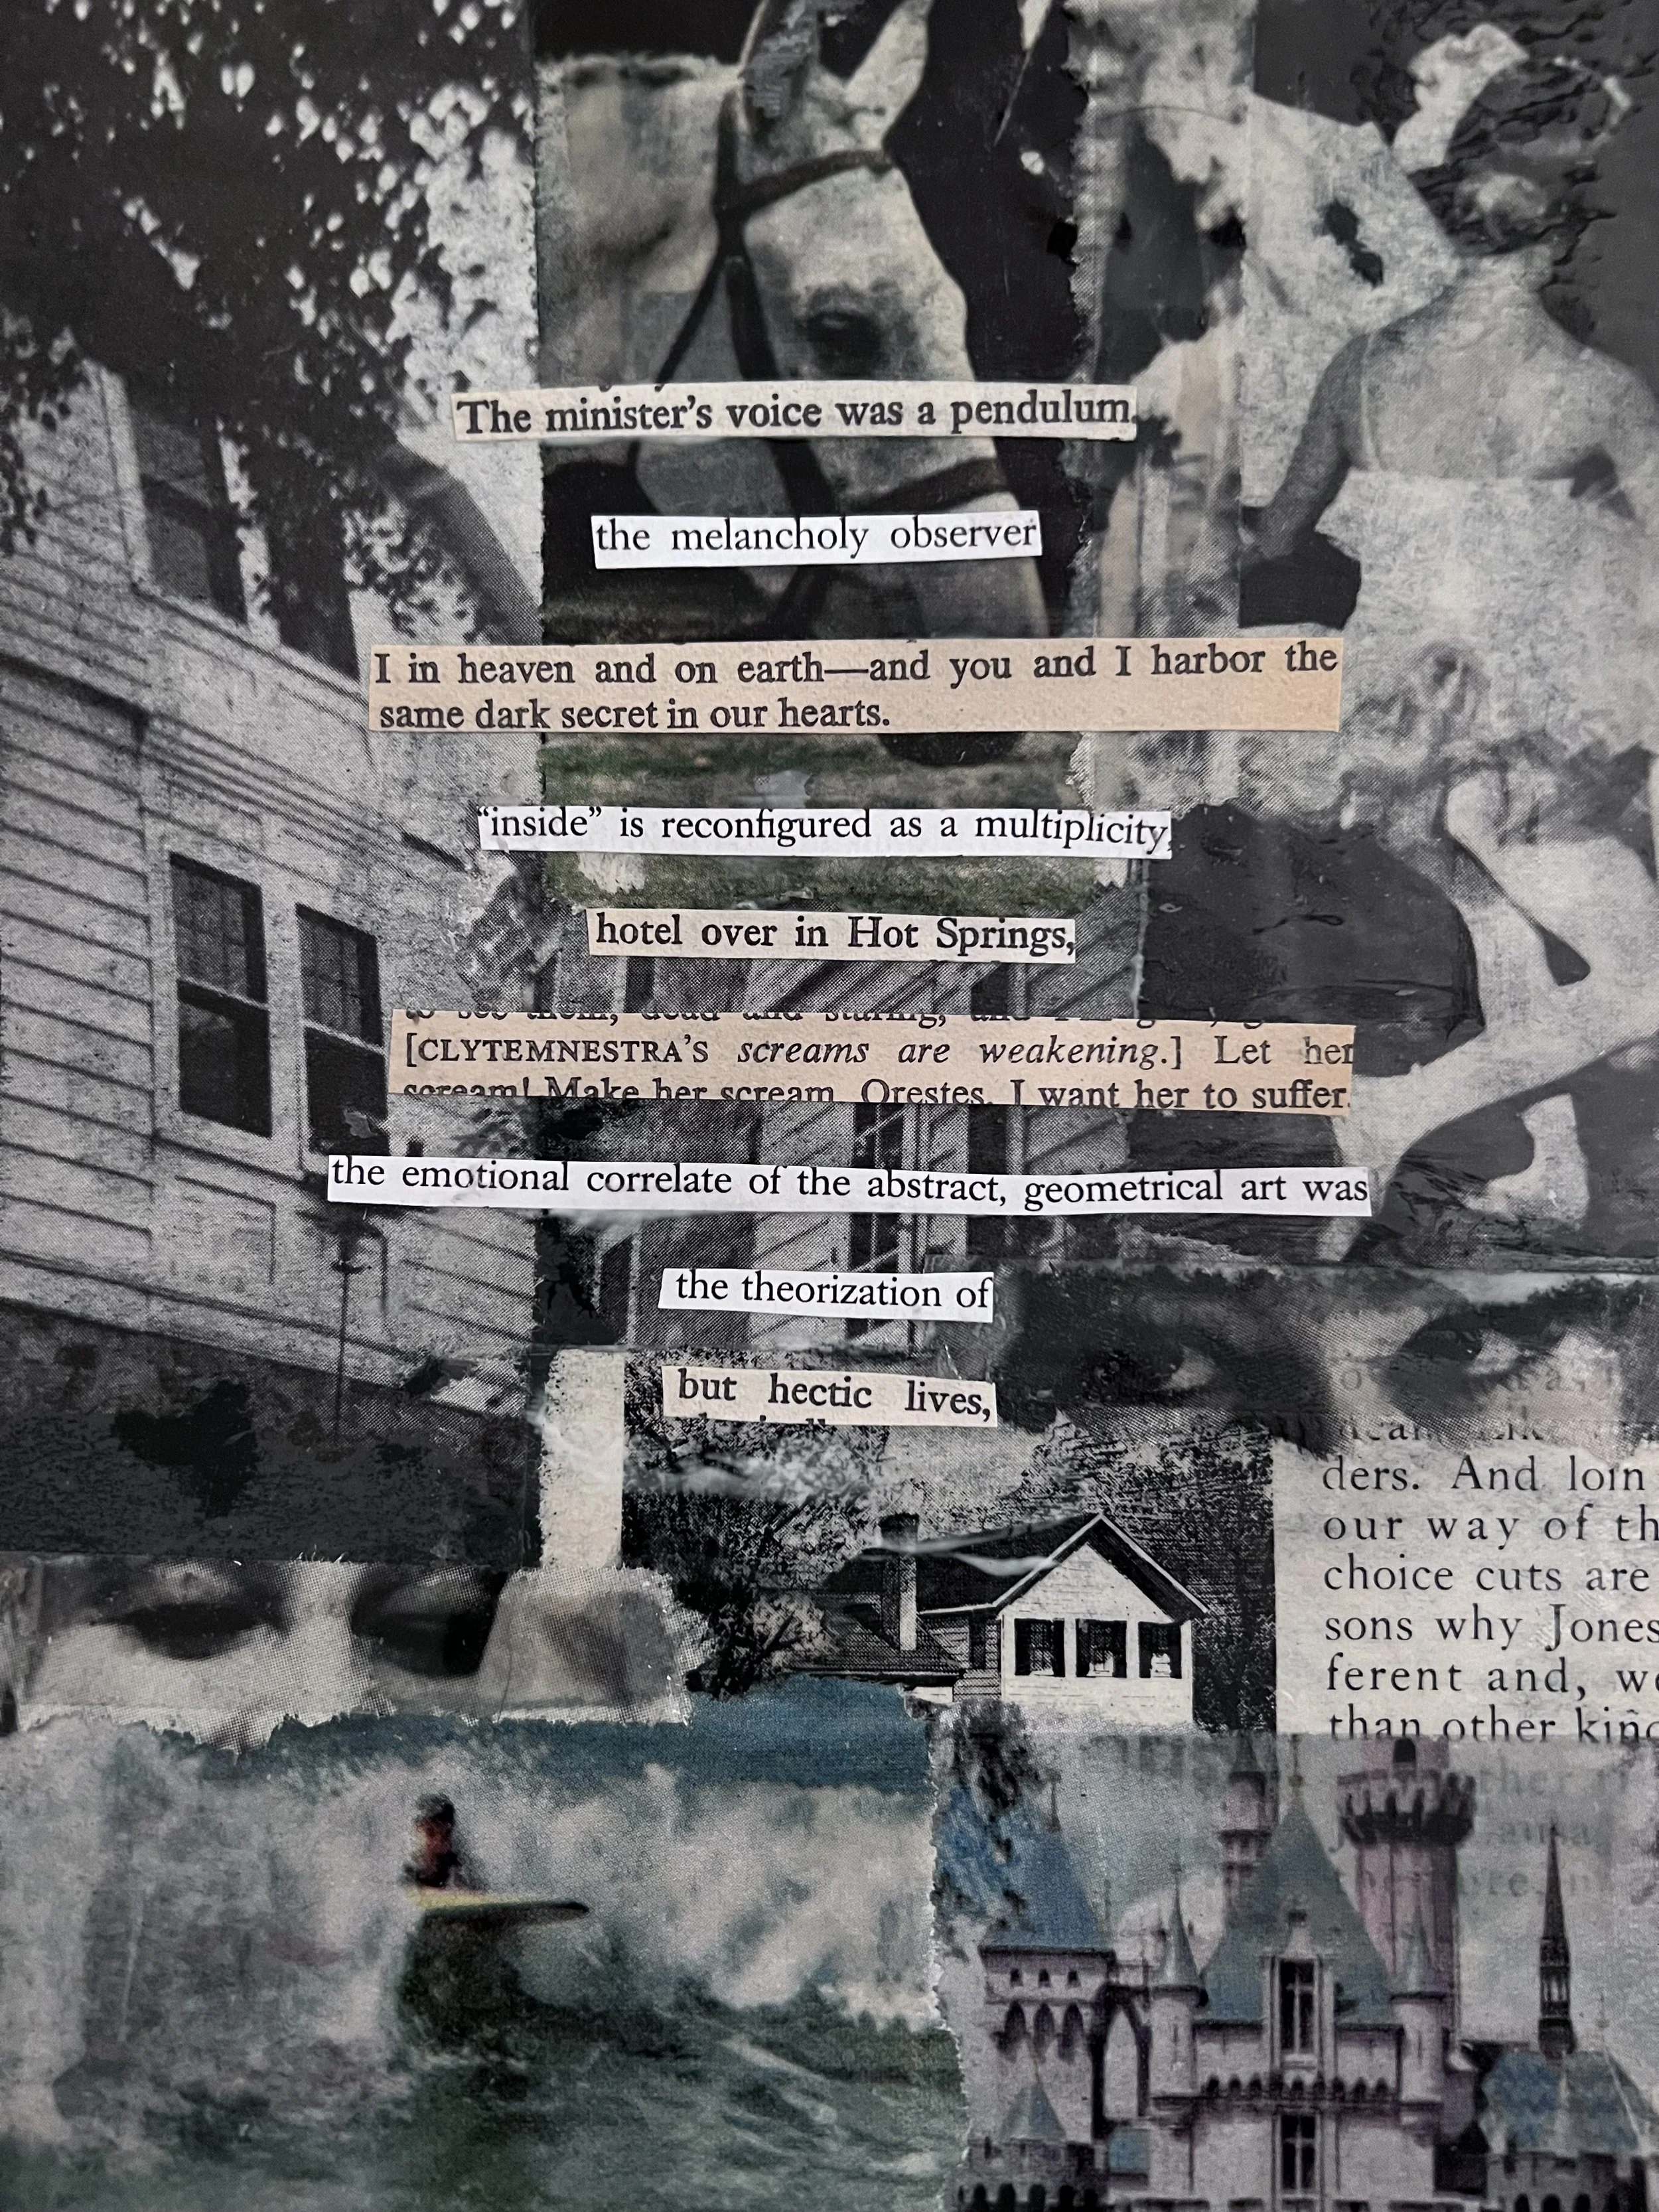 The minister's voice was a pendulum,
the melancholy observer
I in heaven and on earth—and you and I harbor the
same dark secret in our hearts.
"inside" is reconfigured as a multiplicity,
hotel over in Hot Springs,
to see them, dead and staring, and
[CLYTEMNESTRA'S screams are weakening.] Let her
scream! Make her scream, Orestes. I want her to suffer.
the emotional correlate of the abstract, geometrical art was
the theorization of
but hectic lives,
ders. And loin
our way of th
choice cuts are
sons why Jones
ferent and, we
than other kind